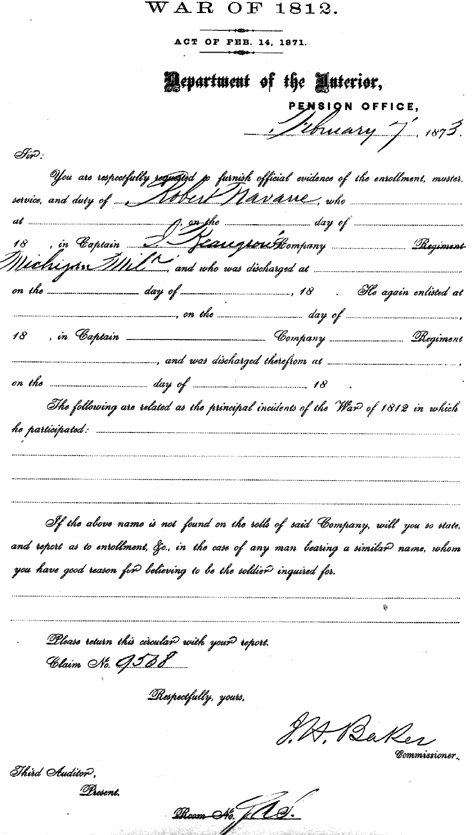 WAR OF 1812.
ACT OF FEB. 14, 1871.
Department of the Interior,
PENSION OFFICE,
February 7, 1873.
Sir:
You are respectfully requested to furnish official evidence of the enrollment, muster,
service, and duty of Robert Navarre, who
at , on the day of
18 , in Captain J. Company Regiment
Michigan Mil^a, and who was discharged at
on the day of , 18 . He again enlisted at
, on the day of ,
18 , in Captain Company Regiment
, and was discharged therefrom at
on the day of , 18 .
The following are related as the principal incidents of the War of 1812 in which
he participated:
If the above name is not found on the rolls of said Company, will you so state,
and report as to enrollment, &c., in the case of any man bearing a similar name, whom
you have good reason for believing to be the soldier inquired for.
Please return this circular with your report.
Claim No. 9568
Respectfully, yours,
J. H. Baker
Commissioner.
Third Auditor,
Present.
Room No.